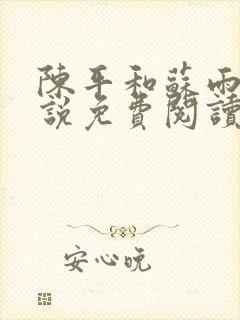 陳平和蘇雨
說免費閱讀
安心晚